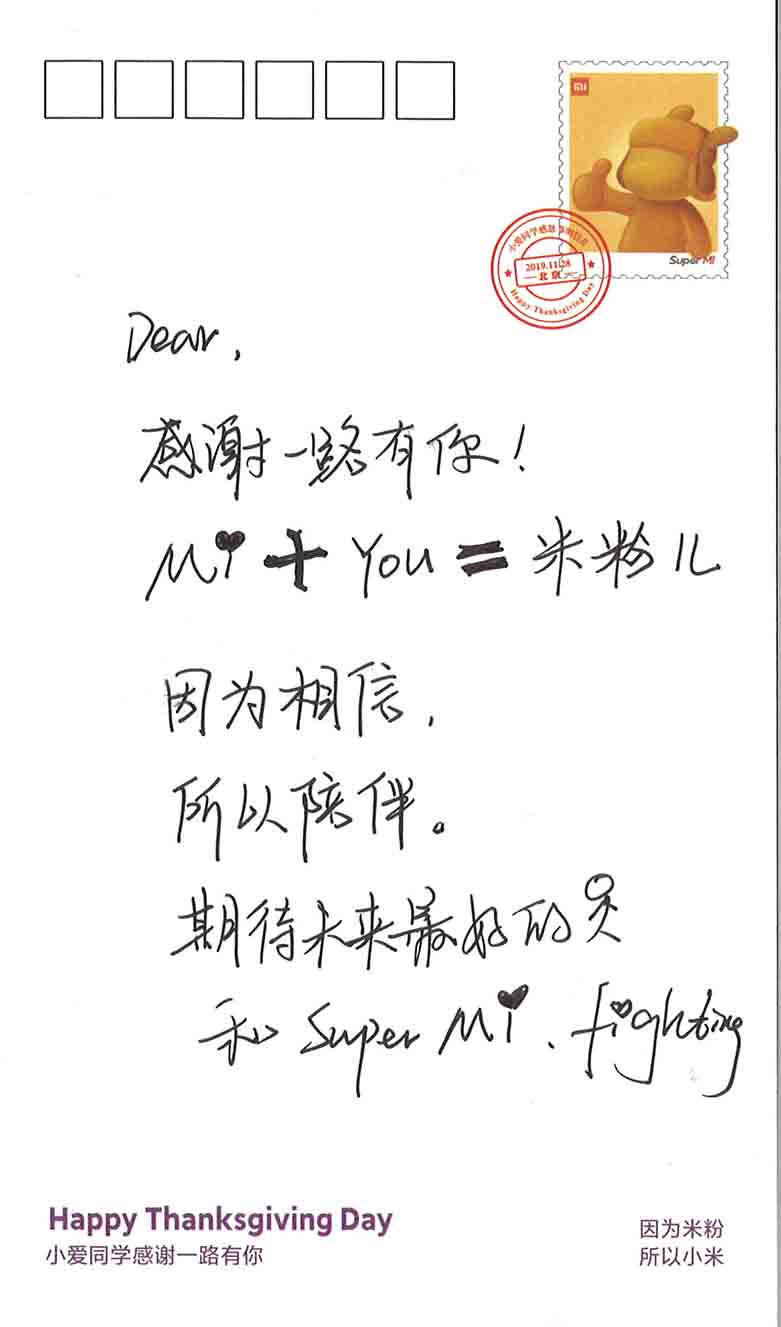 MI
Super MI
2019.11.28
北京
Happy Thanksgiving Day
Dear,
感谢一路有你!
Mi + You = 米粉儿
因为相信,
所以陪伴。
期待未来最好的
和 Super Mi. fighting
Happy Thanksgiving Day
小爱同学感谢一路有你
因为米粉
所以小米